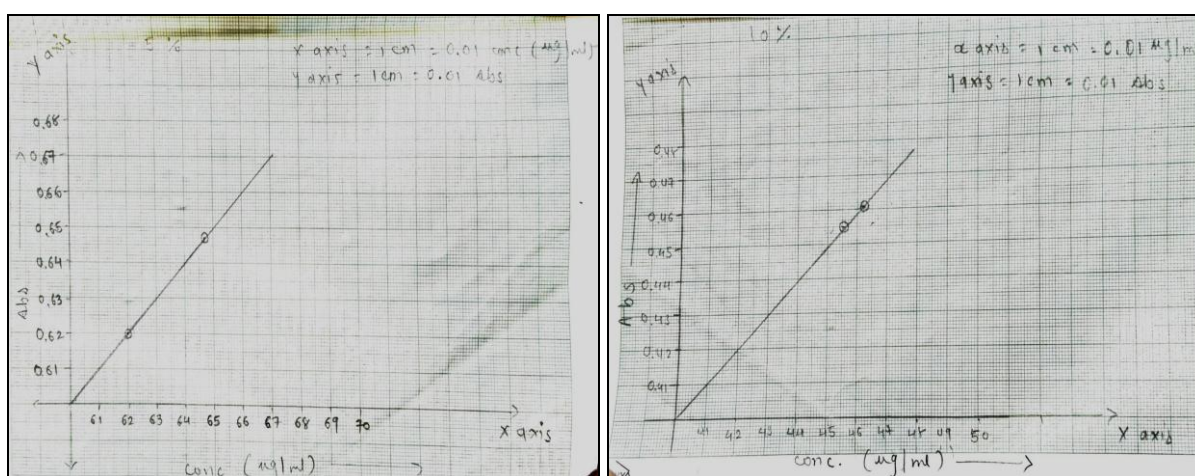 5 %
x axis = 1 cm = 0.01 conc (µg/ml)
y axis = 1 cm = 0.01 Abs
y axis
0.68
0.67
0.66
0.65
0.64
0.63
0.62
0.61
Abs
61 62 63 64 65 66 67 68 69 70
x axis
conc (µg/ml)
10 %
x axis = 1 cm = 0.01 µg/m
y axis = 1 cm = 0.01 Abs
y axis
0.48
0.47
0.46
0.45
0.44
0.43
0.42
0.41
Abs
41 42 43 44 45 46 47 48 49 50
X axis
conc. (µg/ml)